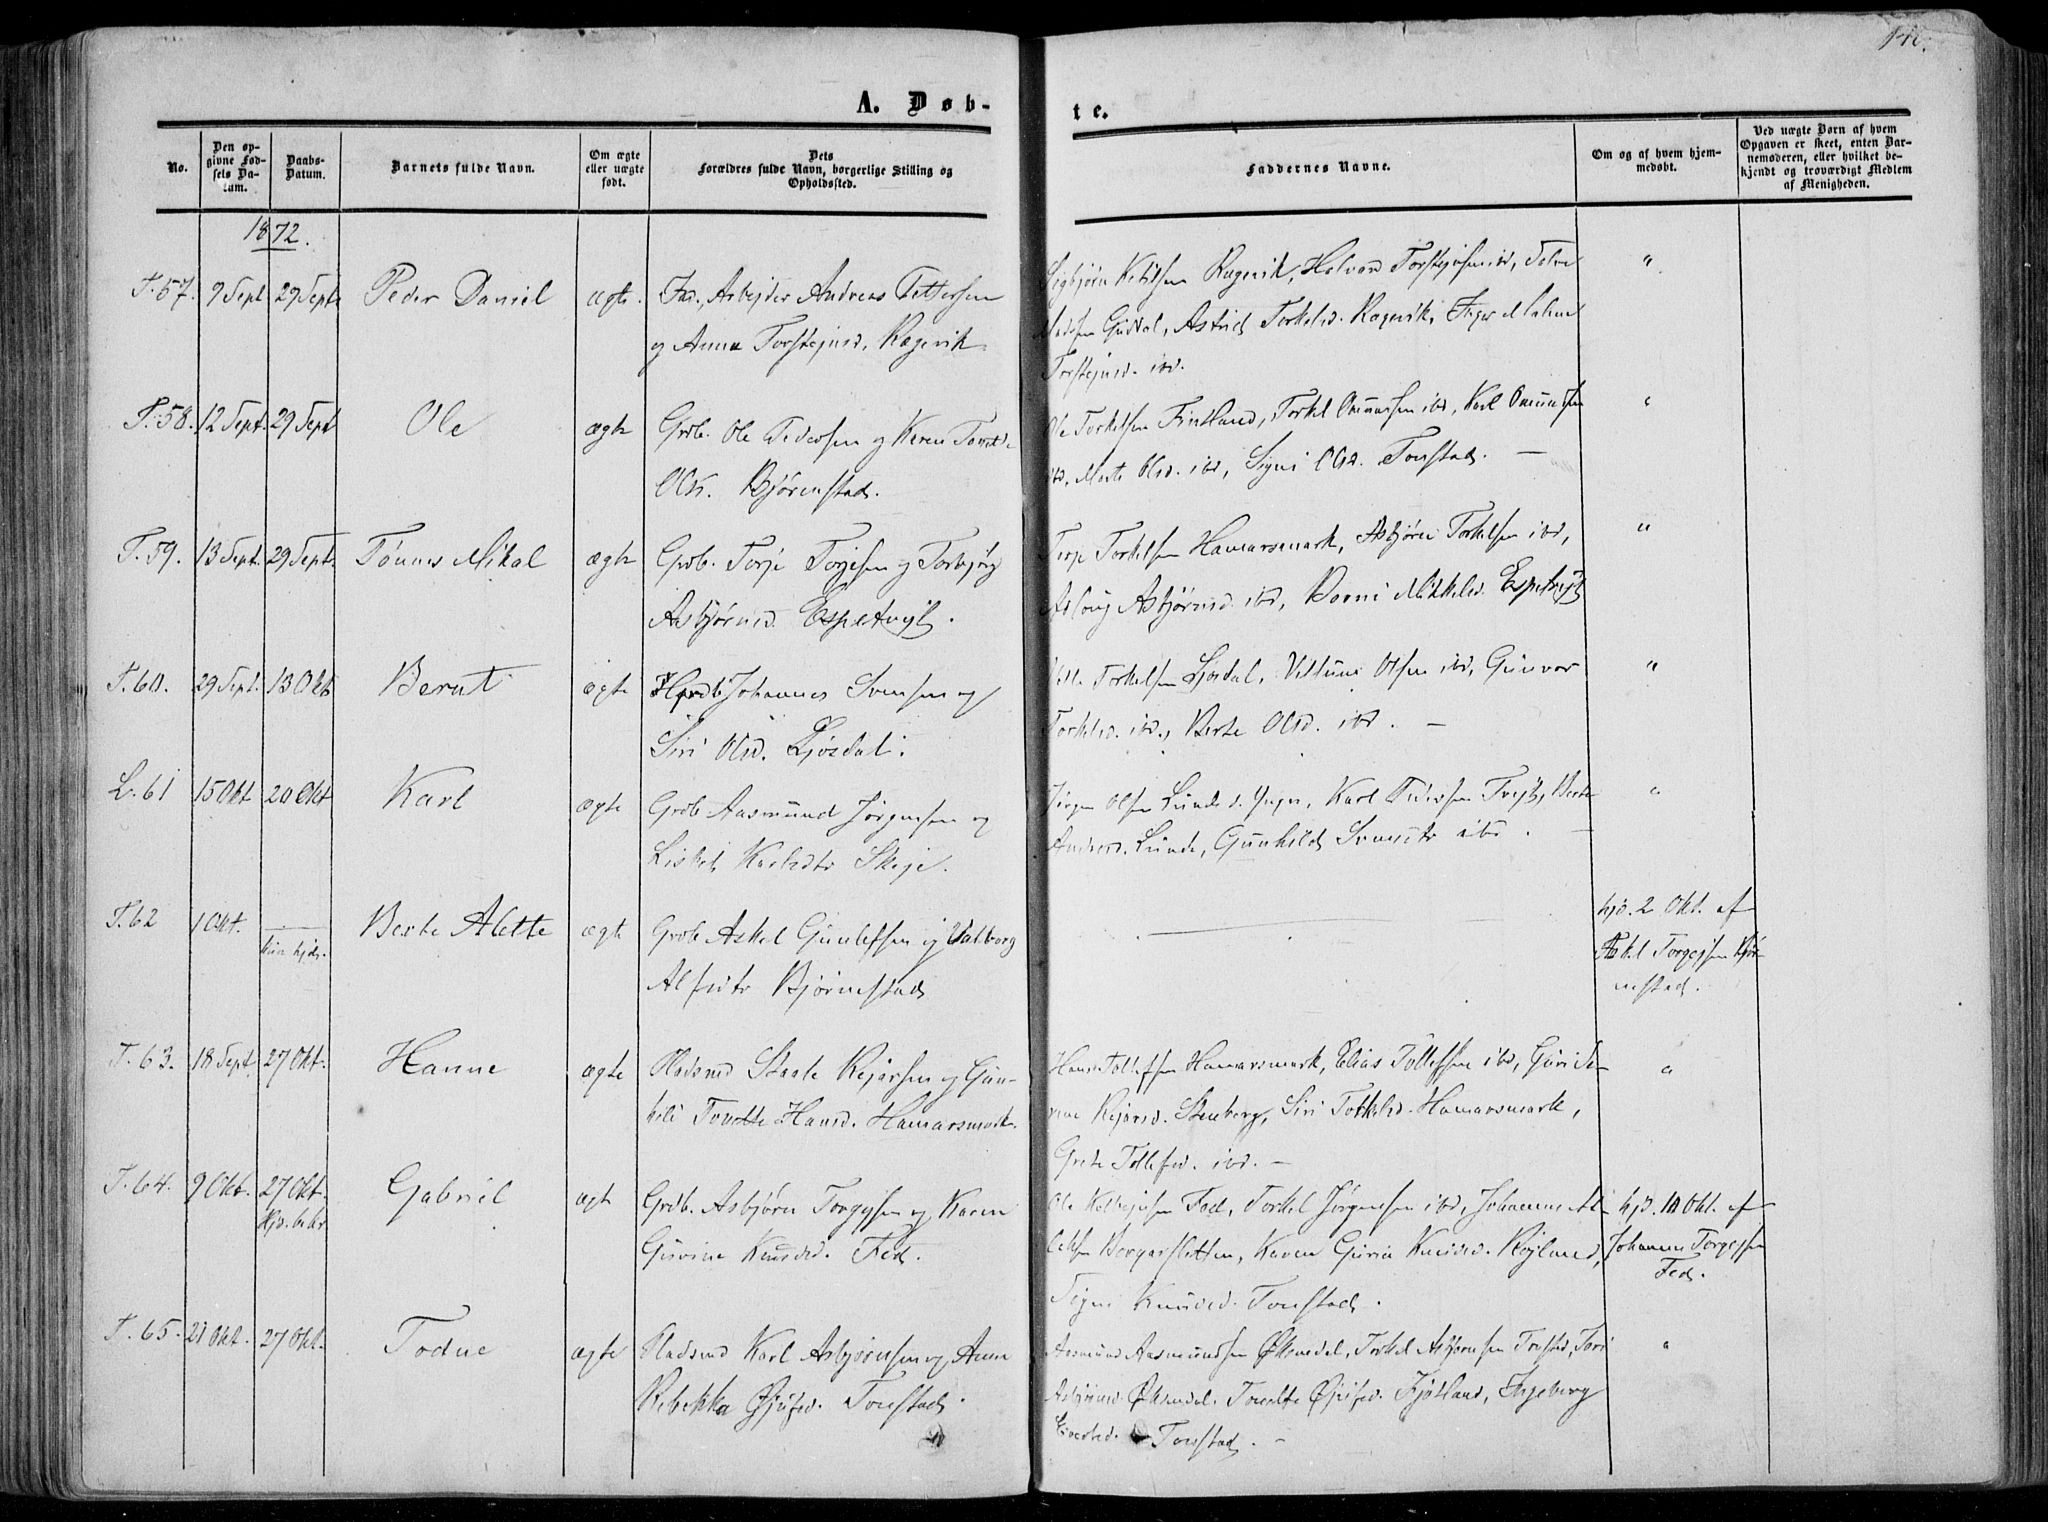 A. Døb-
te.
No.
Den op-
givne Fød-
sels Da-
tum.
Daabs-
Datum.
Barnets fulde Navn.
Om ægte
eller uægte
født.
Dets
Forældres fulde Navn, borgerlige Stilling og
Opholdssted.
Faddernes Navne.
Om og af hvem hjem-
medøbt.
Ved uægte Børn af hvem
Opgaven er skeet, enten Bar-
nemoderen, eller hvilket be-
kjendt og troværdigt Medlem
af Menigheden.
1872.
T. 57. 9 Sept 29 Sept Peder Daniel ægte. Ind., Arbejder Andreas Pettersen
og Anna Torstejnsd. Ragevik
Sigbjørn Ketilsen Ragevik, Halvard Torstejnsen ibd,
Madsen Gusdal, Astrid Torkelsd. Ragevik, Inger Malene
Torstejnsd. ibd. "
T. 58. 12 Sept. 29 Sept Ole ægte Grdb. Ole Pedersen og Karen Tonette
Olsd. Bjørnestad.
Ole Torkelsen Fintland, Torkel Omundsen ibd, Karl Omundsen
ibd, Marte Olsd. ibd, Signi Olsd. Tonstad. — "
T. 59. 13 Sept. 29 Sept. Tønnes Mikal ægte Grdb. Torje Torjesen og Torbjørg
Asbjørnsd. Espetvejt.
Terje Torkelsen Hamarsmark, Asbjørn Torkelsen ibd,
Aslaug Asbjørnsd. ibd, Mikkelsd. Espetvejt "
T. 60. 29 Sept. 13 Okt Bernt ægte Grdb Johannes Svensen og
Siri Olsd. Ljosdal.
Torkelsen Ljosdal, Olsen ibd, Gunvor
Torkelsd. ibd., Berte Olsd. ibd. — "
L. 61 15 Okt 20 Okt Karl ægte Grdb Aasmund Jørgensen og
Lisbet Karlsdtr Skeje.
Jørgen Olsen Lunde d. yngre, Karl Pedersen Tvejt, Berte
Andersd. Lunde, Gunhild Svensdtr ibd. — "
T. 62 1 Okt. —
kun hjdbt. Berte Alette ægte Grdb Askel Gunlefsen og Valborg
Alfsdtr Bjørnestad
—
hjd. 2 Okt. af
Askel Torgejsen Bjør-
nestad.
T. 63. 18 Sept 27 Okt. Hanne ægte Pladsmd Staale Rejarsen og Gun-
hild Tonette Hansd. Hamarsmark.
Hans Tollefsen Hamarsmark, Elias Tollefsen ibd, Guri Se-
rine Rejarsd. Stenberg, Siri Torkelsd. Hamarsmark,
Grete Tollefsd. ibd. — "
T. 64. 9 Okt. 27 Okt.
Hjd. bekr Gabriel ægte Grdb. Asbjørn Torgejsen og Karen
Gurine Knudsd. Fed.
Ole Kolbejnsen Fed, Torkel Jørgensen ibd, Johannes
Borgarsletten, Karen Guria Knudsd. Røjland,
Signi Knudsd. Tonstad.
hjd. 10 Okt. af
Johannes Torgejsen
Fed.
T. 65. 21 Okt. 27 Okt. Todne ægte Pladsmd Karl Asbjørnsen og Anne
Rebekka Gjufsd. Tonstad.
Aasmund Aasmundsen Øksendal, Torkel Asbjørnsen Tonstad, Tori
Asbjørnsd. Øksendal, Tonette Fjotland, Ingeborg
Tonstad. — "